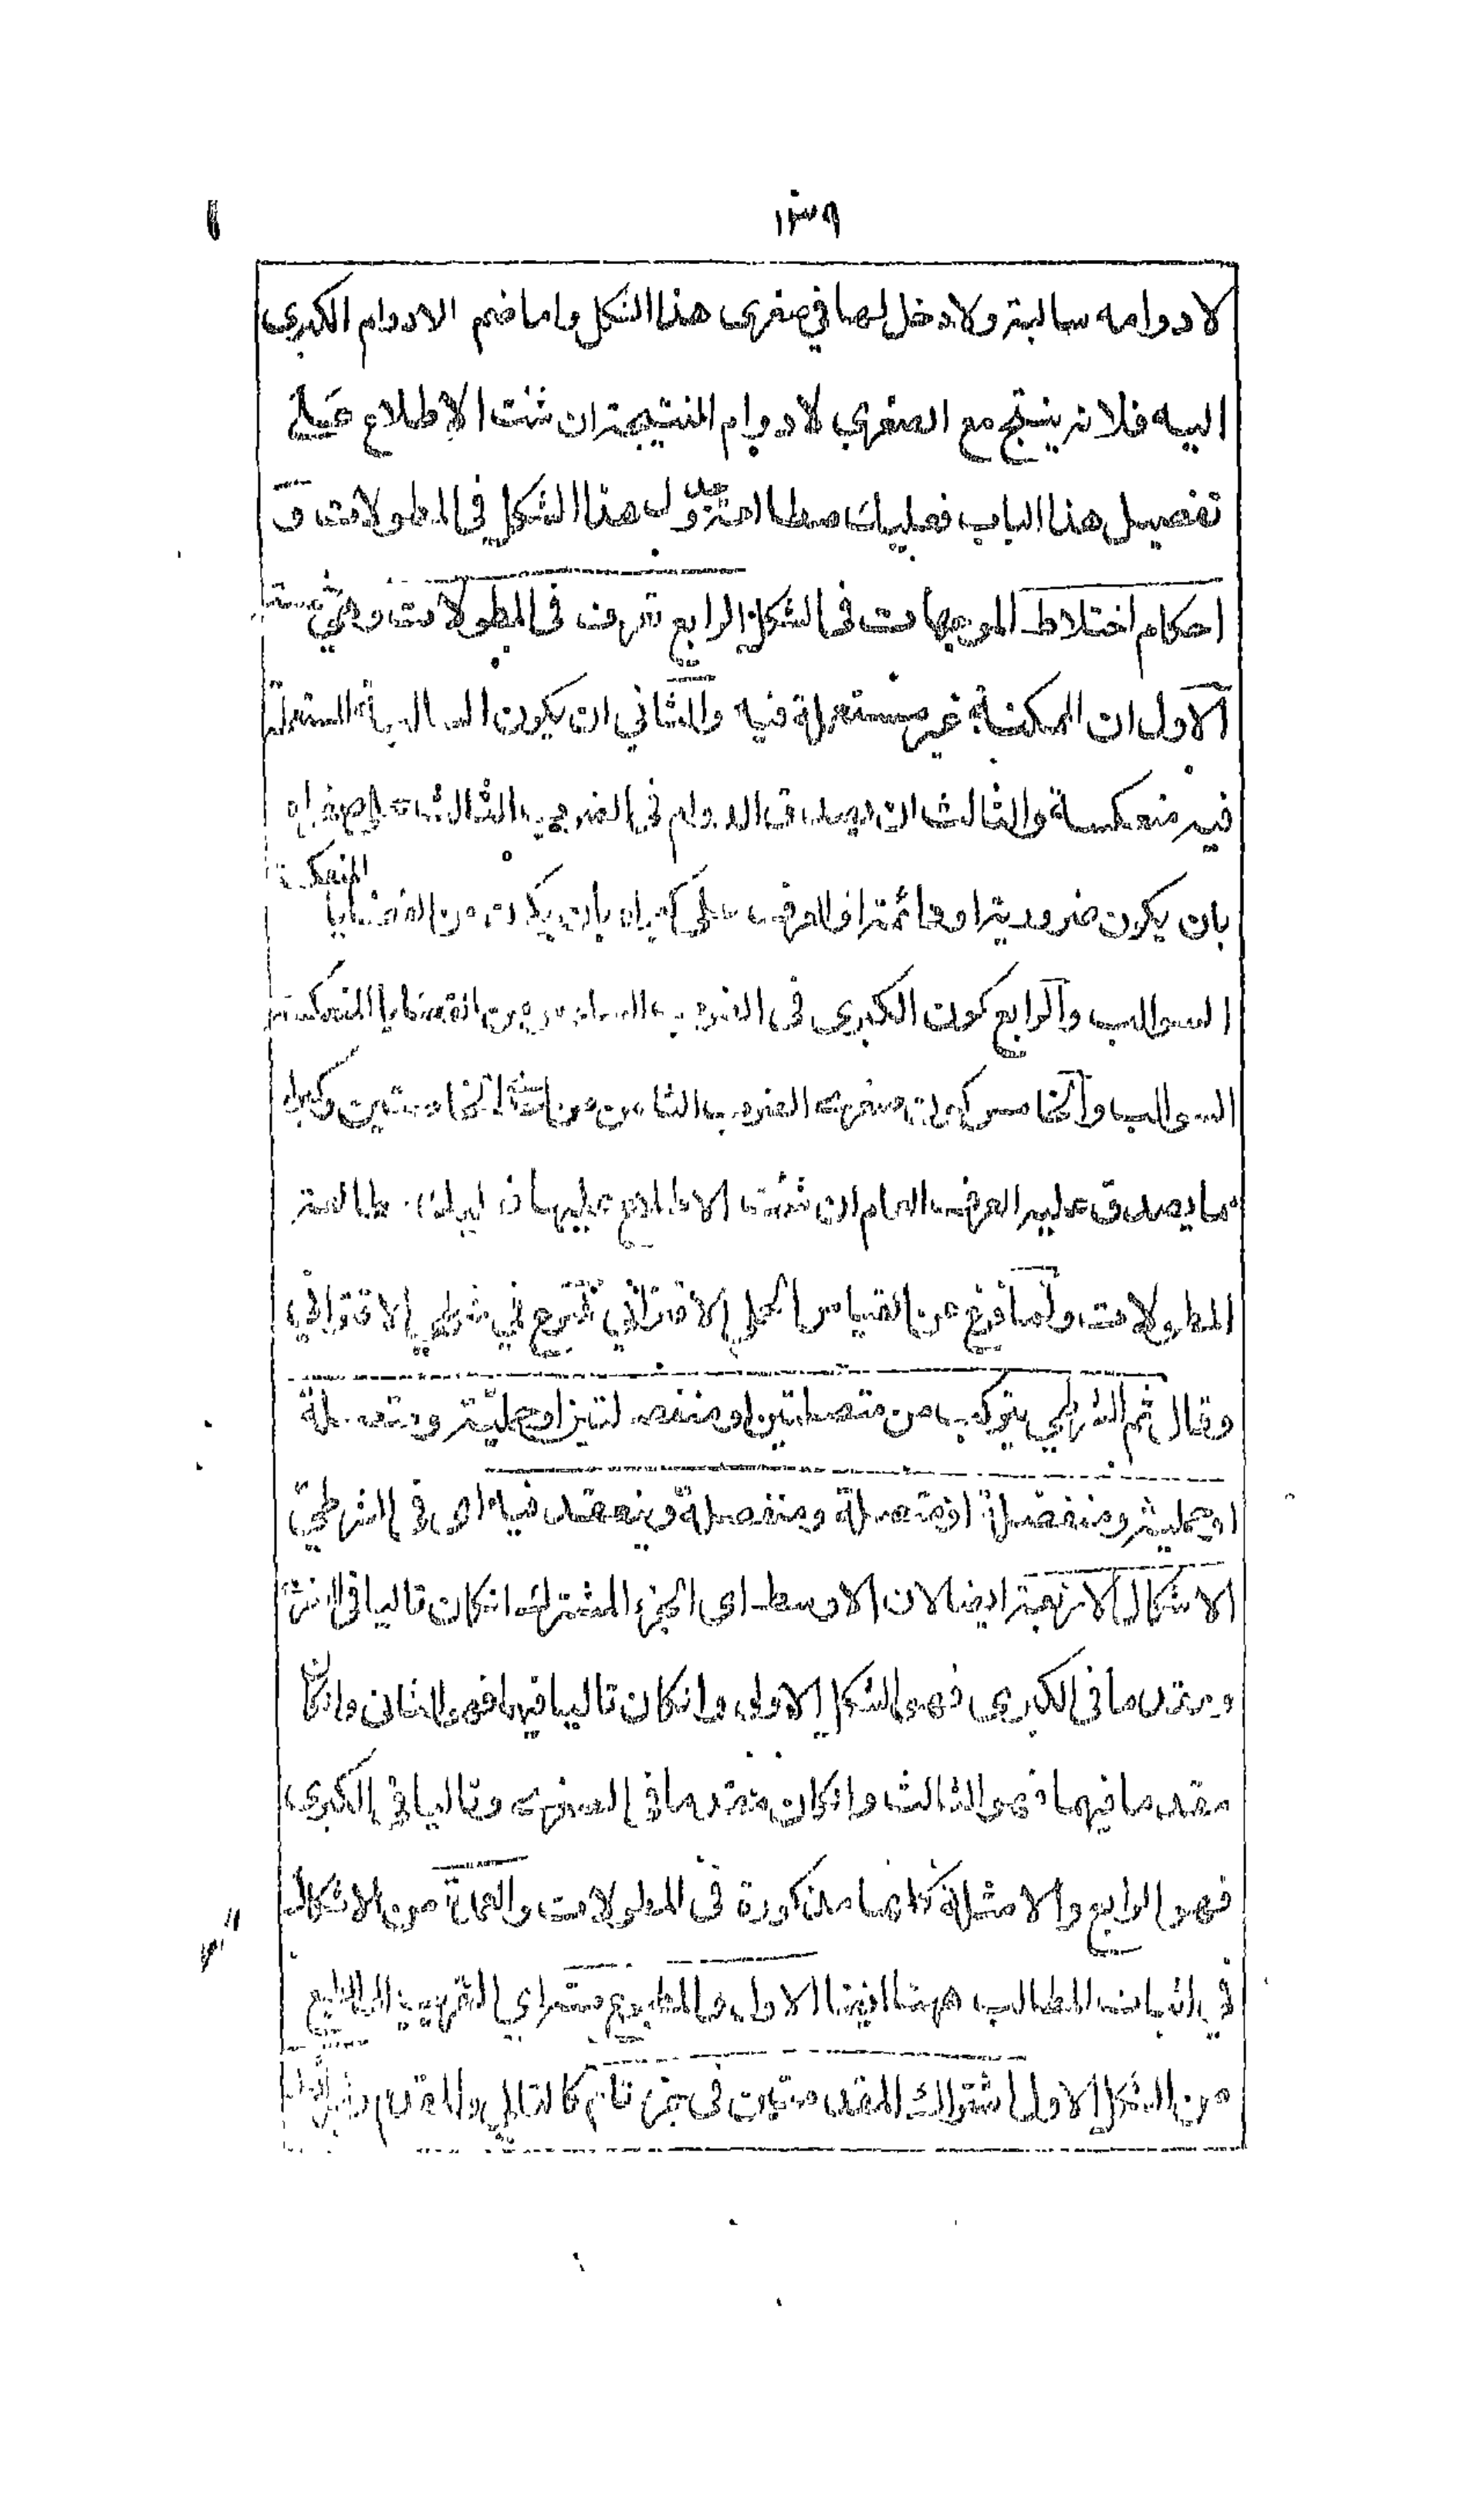 ١٣٩
لا دوامه سالبة ولا دخل لها في صغرى هذا الشكل واما ضم الادوام الكبرى
اليه فلانه ينتج مع الصغرى لا دوام النتيجة ان شئت الاطلاع على
تفصيل هذا الباب فعليك مطالعة جدول هذا الشكل في المطولات و
احكام اختلاط الموجهات في الشكل الرابع تعرف في المطولات وهي
الاول ان الممكنة غير مستعملة فيه والثاني ان يكون السالبة المستعملة
فيه منعكسة والثالث ان يصدق الدوام في الضرب الثالث على صغراه
بان يكون ضرورية او دائمة او العرف على كبراه بان يكون من القضايا المنعكسة
السوالب والرابع كون الكبرى في الضرب السادس من القضايا المنعكسة
السوالب والخامس كون صغرى الضرب الثامن من الخاصتين وكبراه
مما يصدق عليه العرف العام ان شئت الاطلاع عليها فعليك مطالعة
المطولات ولما فرغ من القياس الحملي الاقتراني شرع في شرطي الاقتراني
وقال ثم الشرطي يتركب من متصلتين او منفصلتين او حملية ومتصلة
او حملية ومنفصلة او متصلة ومنفصلة وينعقد فيه اى في الشرطي
الاشكال الاربعة ايضا لان الاوسط اى الجزء المشترك انكان تاليا في
ومقدما في الكبرى فهو الشكل الاول وانكان تاليا فيهما فهو الثاني وانكان
مقدما فيهما فهو الثالث وانكان مقدما في الصغرى وتاليا في الكبرى
فهو الرابع والامثلة كلها مذكورة في المطولات والعمدة من الاشكال
في اثبات المطالب ههنا ايضا الاول والمطبوع منه اي القريب الى الطبع
من الشكل الاول اشتراك المقدمتين في جزء تام كالتالي والمقدم